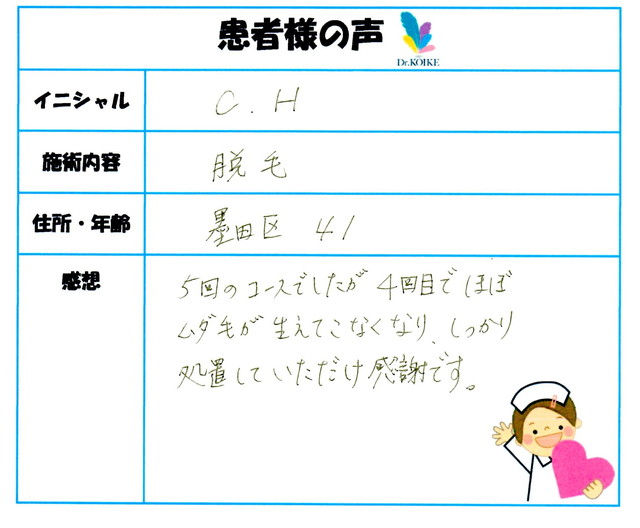 患者様の声
Dr.KOIKE
イニシャル
C.H
施術内容
脱毛
住所・年齢
墨田区 41
感想
5回のコースでしたが4回目でほぼ
ムダ毛が生えてこなくなり、しっかり
処置していただけ感謝です。